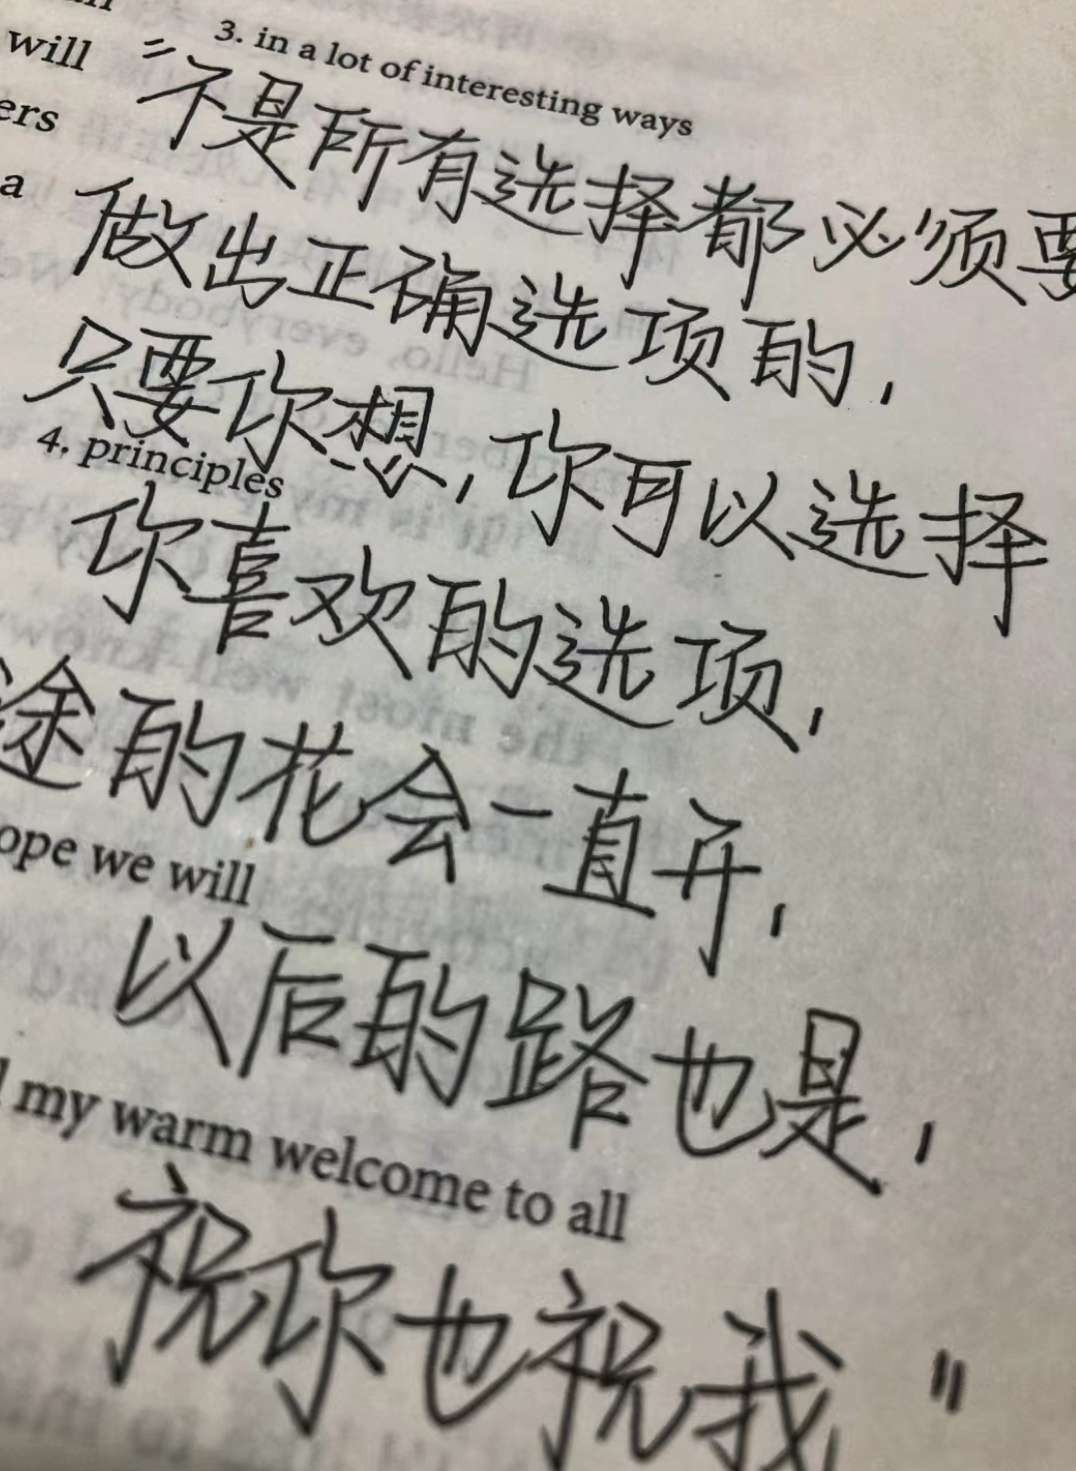 will
3. in a lot of interesting ways
"不是所有选择都必须要
ers
a
做出正确选项的，
只要你想，你可以选择
4. principles
你喜欢的选项，
途的花会一直开，
ope we will
以后的路也是，
my warm welcome to all
祝你也祝我"